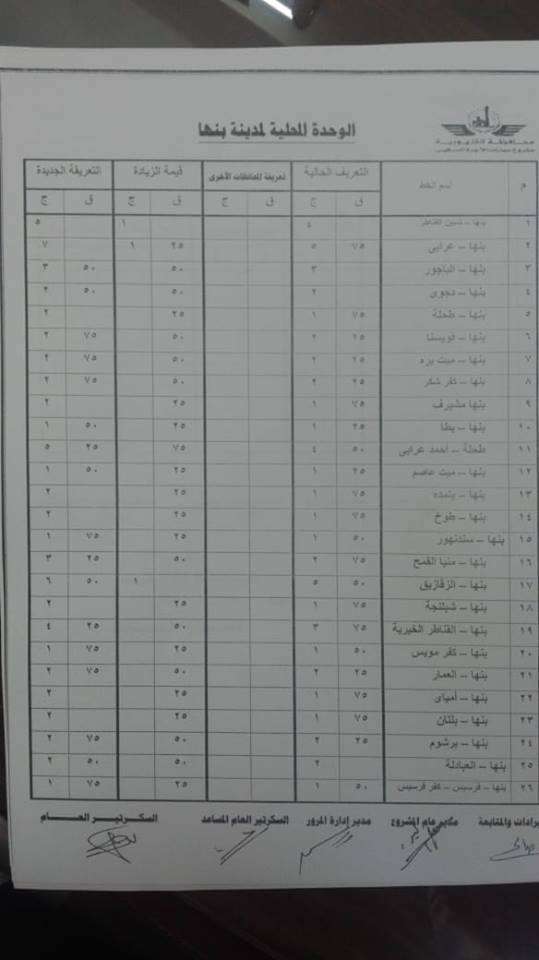 محافظة القليوبية
الوحدة المحلية لمدينة بنها
م اسم الخط التعريف الحالية تعريفة المحافظات الأخرى قيمة الزيادة التعريفة الجديدة
ق ج ق ج ق ج ق ج
١ بنها – شبين القناطر ٤ ١ ٥
٢ بنها – عرابى ٧٥ ٥ ٢٥ ١ ٧
٣ بنها – الباجور ٣ ٥٠ ٥٠ ٣
٤ بنها – دجوى ٢ ٥٠ ٥٠ ٢
٥ بنها – طحلة ٧٥ ١ ٢٥ ٢
٦ بنها – قويسنا ٢٥ ٢ ٥٠ ٧٥ ٢
٧ بنها – ميت بره ٢٥ ٢ ٥٠ ٧٥ ٢
٨ بنها – كفر شكر ٢٥ ٢ ٥٠ ٧٥ ٢
٩ بنها مشيرف ٧٥ ١ ٢٥ ٢
١٠ بنها – بطا ٢٥ ١ ٢٥ ٥٠ ١
١١ طحلة – احمد عرابى ٥٠ ٤ ٧٥ ٢٥ ٥
١٢ بنها – ميت عاصم ٢٥ ١ ٢٥ ٥٠ ١
١٣ بنها – بتمده ٧٥ ١ ٢٥ ٢
١٤ بنها – طوخ ٧٥ ١ ٢٥ ٢
١٥ بنها – سندنهور ٥٠ ١ ٢٥ ٧٥ ١
١٦ بنها – منيا القمح ٧٥ ٢ ٥٠ ٢٥ ٣
١٧ بنها – الزقازيق ٥٠ ٥ ١ ٥٠ ٦
١٨ بنها – شبلنجة ٧٥ ١ ٢٥ ٢
١٩ بنها – القناطر الخيرية ٧٥ ٣ ٥٠ ٢٥ ٤
٢٠ بنها – كفر مويس ٥٠ ١ ٢٥ ٧٥ ١
٢١ بنها – العمار ٢٥ ٢ ٥٠ ٧٥ ٢
٢٢ بنها – أمياى ٧٥ ١ ٢٥ ٢
٢٣ بنها – بلتان ٧٥ ١ ٢٥ ٢
٢٤ بنها – برشوم ٢٥ ٢ ٥٠ ٧٥ ٢
٢٥ بنها – العبادلة ٢ ٥٠ ٥٠ ٢
٢٦ بنها – فرسيس – كفر فرسيس ٥٠ ١ ٢٥ ٧٥ ١
والمتابعة مدير عام المشروع مدير إدارة المرور السكرتير العام المساعد السكرتير العام